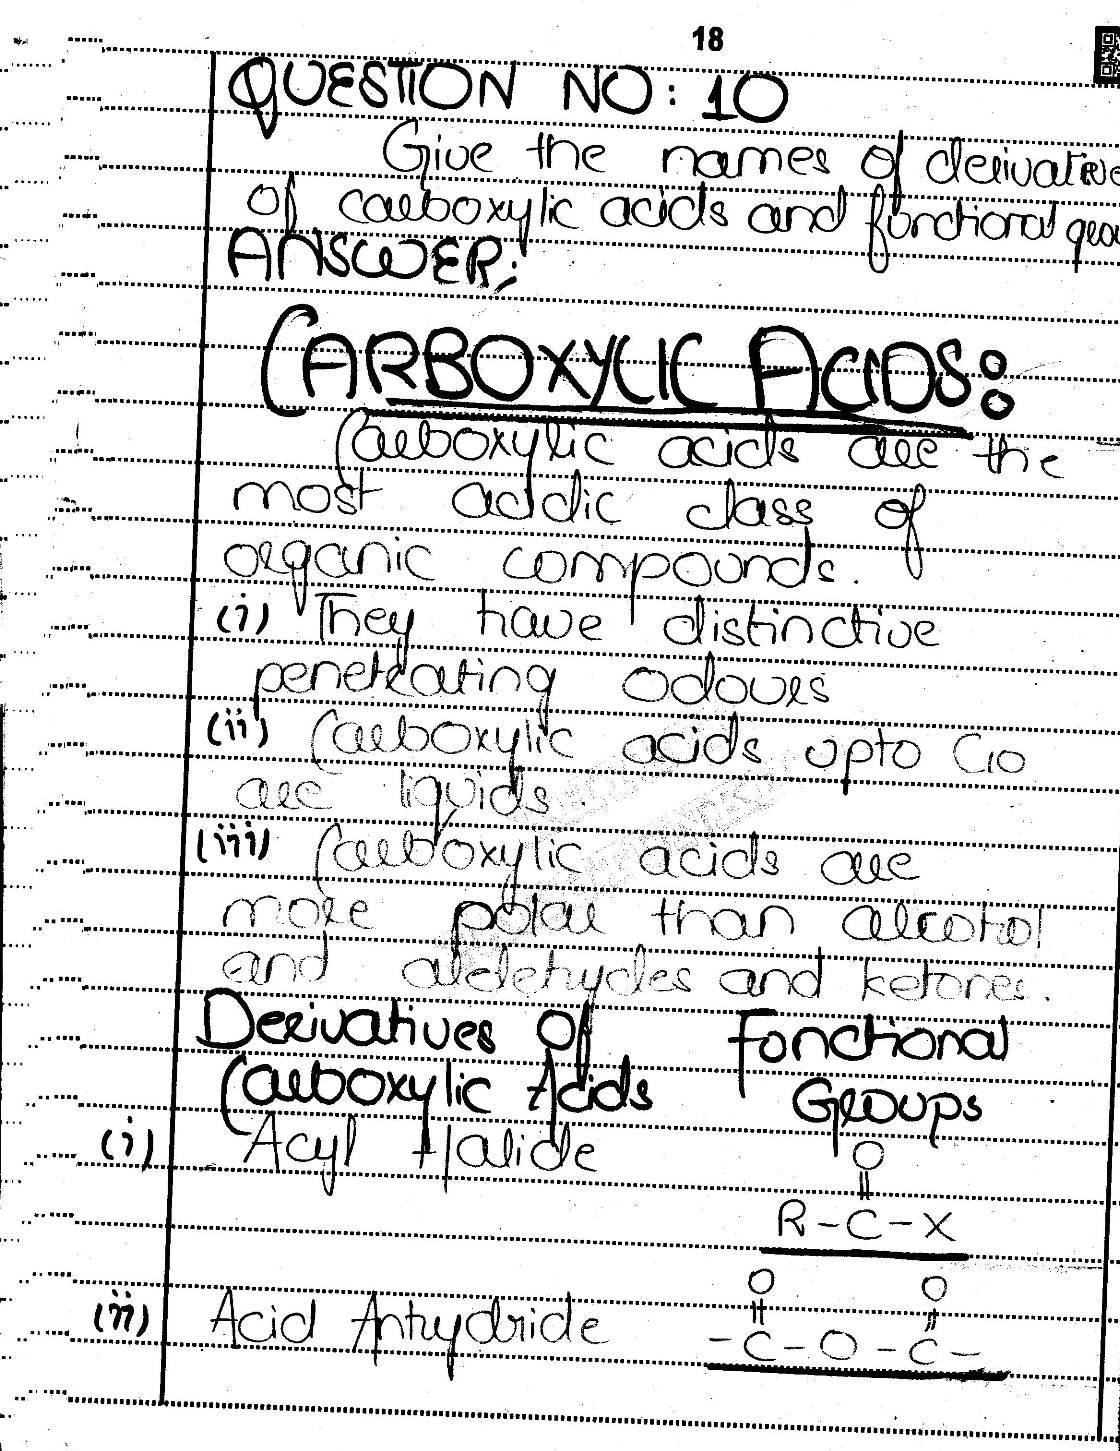 18
QUESTION NO: 10
Give the names of derivative
of carboxylic acids and functional grou
ANSWER:
CARBOXYLIC ACIDS:
Carboxylic acids are the
most acidic class of
organic compounds.
(i) They have distinctive
penetrating odours
(ii) Carboxylic acids upto C10
are liquids.
(iii) Carboxylic acids are
more polar than alcohol
and aldehydes and ketones.
Derivatives Of Functional
Carboxylic Acids Groups
(i) Acyl Halide
O
||
R-C-X
O O
|| ||
(ii) Acid Anhydride -C-O-C-